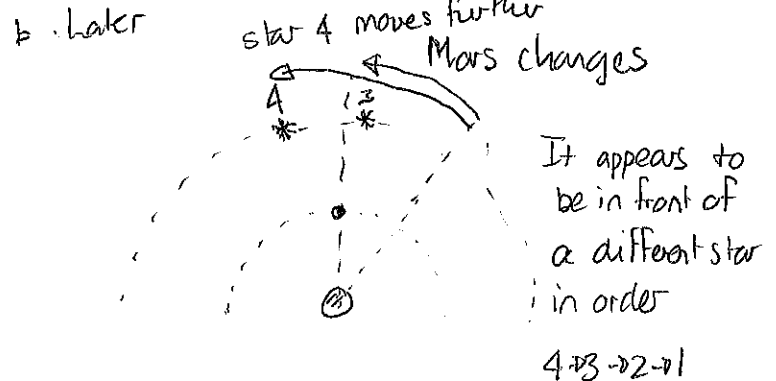 b. Later
star 4 moves further
Mars changes
4
3
It appears to
be in front of
a different star
in order
4→3→2→1